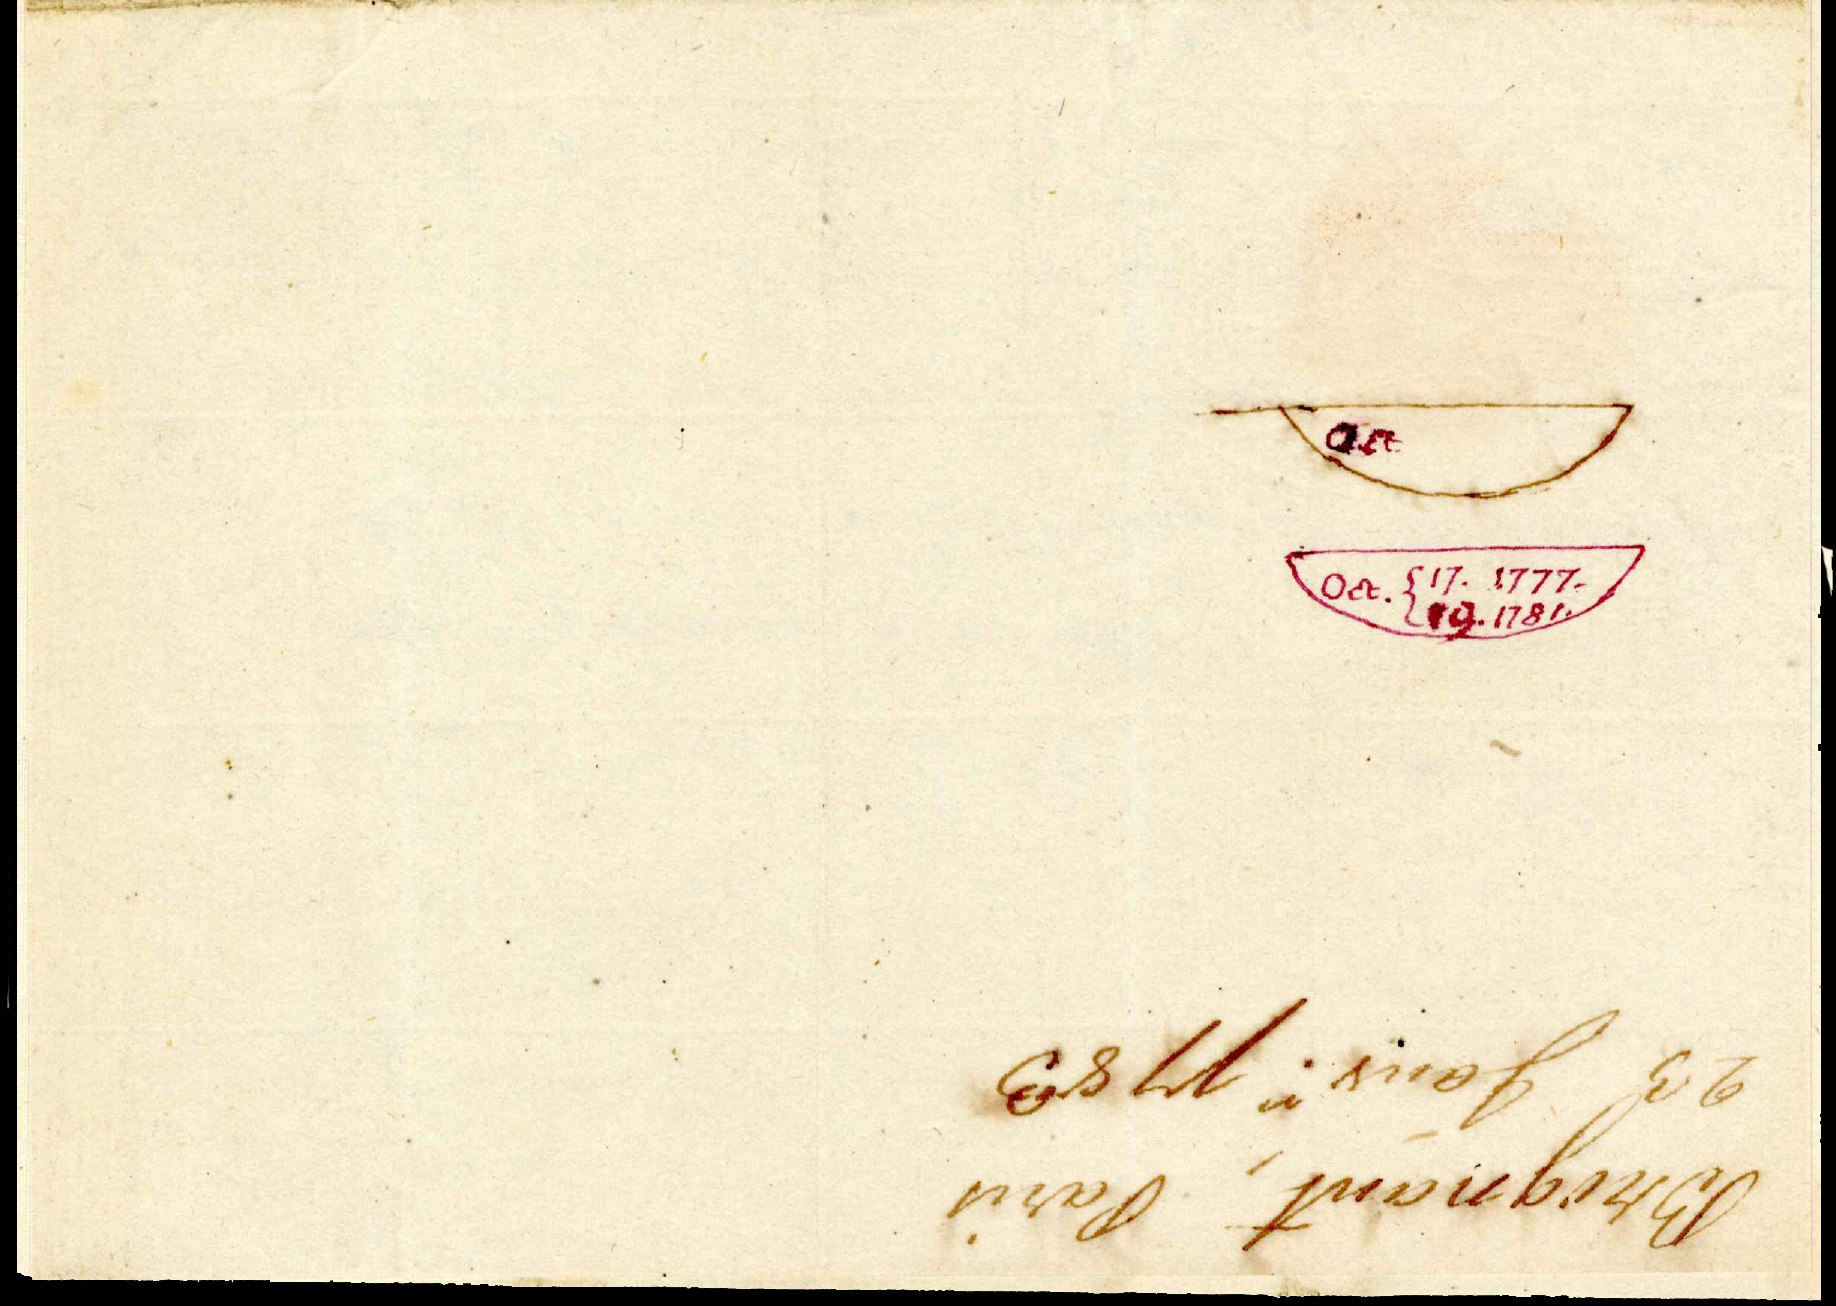 Oct
Oct. { 17. 1777.
19. 1781.
Brugnant, Paris
23 Janv.r 1783